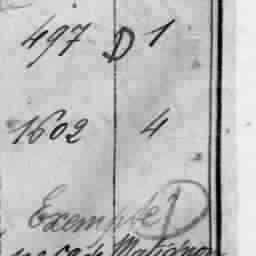 497 D 1
1602 4
Exempte D
Matignon